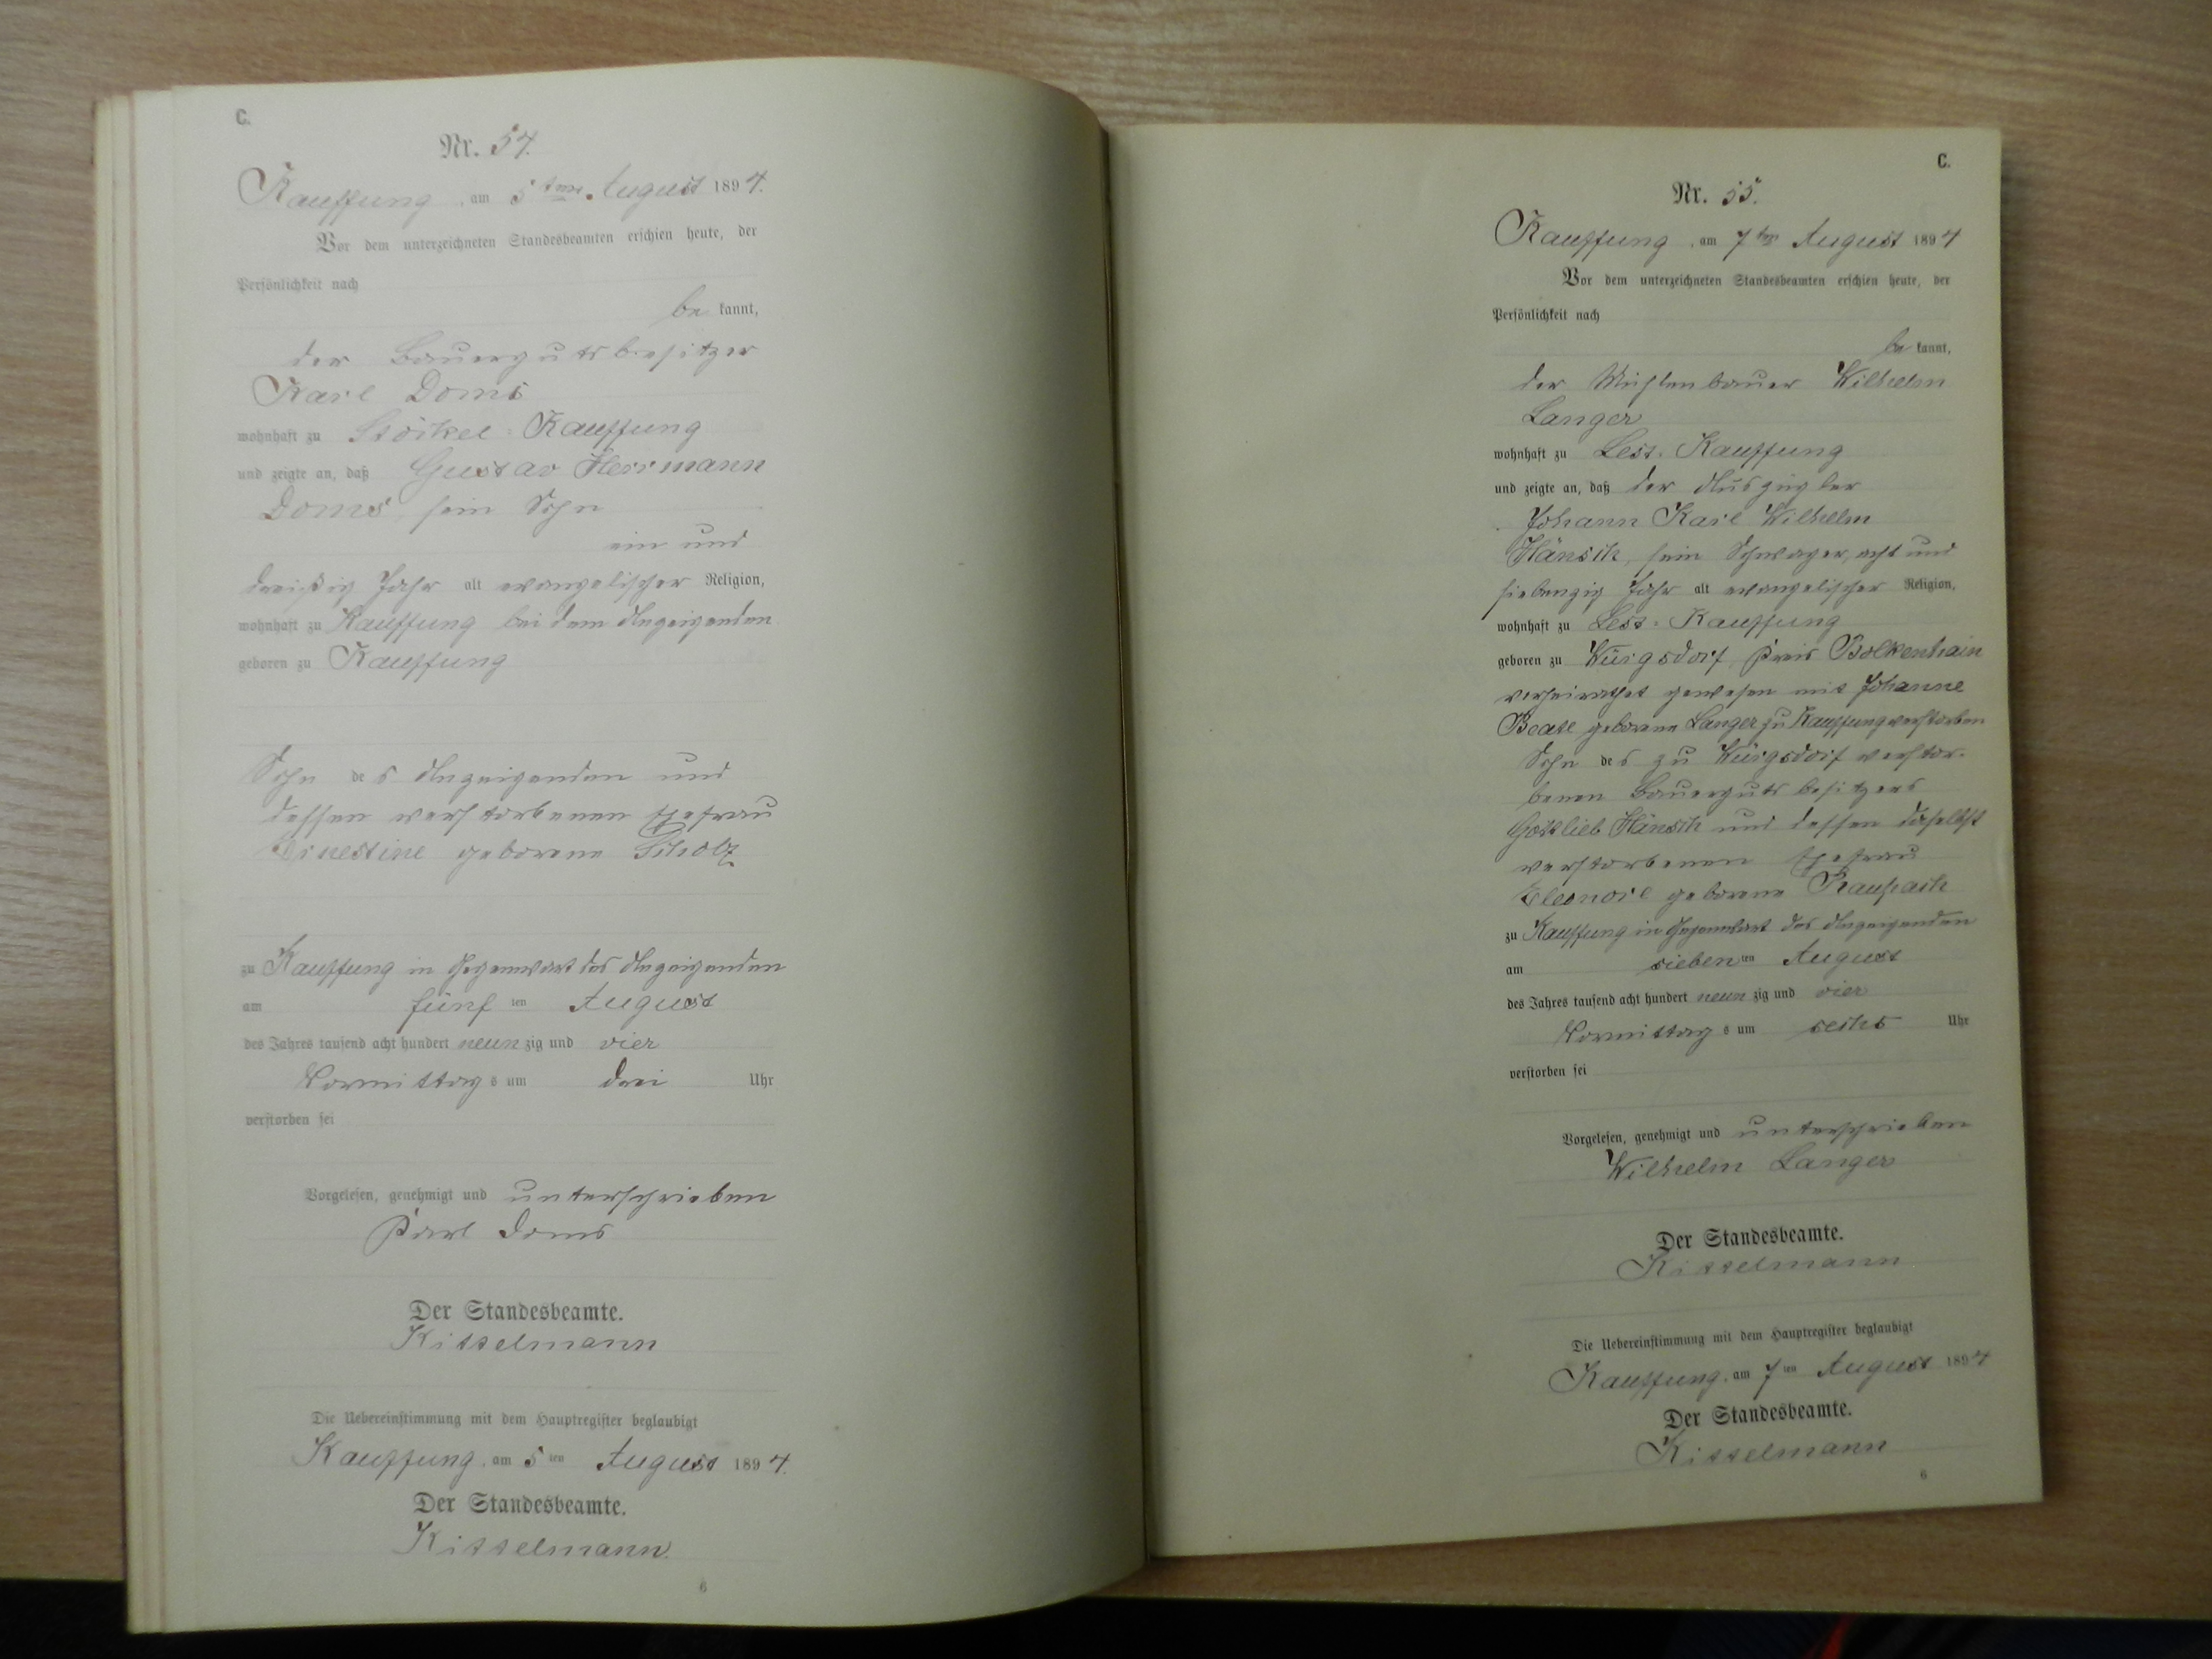 C.
Nr. 54.
Kauffung, am 5ten August 1894.
Vor dem unterzeichneten Standesbeamten erschien heute, der
Persönlichkeit nach
be kannt,
der Bauergutsbesitzer
Karl Doms
wohnhaft zu Stöckel-Kauffung
und zeigte an, daß Gustav Herrmann
Doms, sein Sohn
ein und
dreißig Jahr alt evangelischer Religion,
wohnhaft zu Kauffung bei dem Anzeigenden
geboren zu Kauffung
Sohn des Anzeigenden und
dessen verstorbenen Ehefrau
Ernestine geborene Scholz
zu Kauffung in Gegenwart des Anzeigenden
am fünf ten August
des Jahres tausend acht hundert neun zig und vier
Vormittag s um drei Uhr
verstorben sei
Vorgelesen, genehmigt und unterschrieben
Karl Doms
Der Standesbeamte.
Kisselmann
Die Uebereinstimmung mit dem Hauptregister beglaubigt
Kauffung, am 5 ten August 1894.
Der Standesbeamte.
Kisselmann.
6
C.
Nr. 55.
Kauffung, am 7ten August 1894
Vor dem unterzeichneten Standesbeamten erschien heute, der
Persönlichkeit nach
be kannt,
der Mühlenbauer Wilhelm
Langer
wohnhaft zu Lest-Kauffung
und zeigte an, daß der Auszügler
Johann Karl Wilhelm
Hänsch, sein Schwager, acht und
siebenzig Jahr alt evangelischer Religion,
wohnhaft zu Lest-Kauffung
geboren zu Würgsdorf, Kreis Bolkenhain
verheirathet gewesen mit Johanne
Beate geborene Langer zu Kauffung verstorben
Sohn des zu Würgsdorf verstor-
benen Bauergutsbesitzers
Gottlieb Hänsch und dessen daselbst
verstorbenen Ehefrau
Eleonore geborene Raupach
zu Kauffung in Gegenwart des Anzeigenden
am sieben ten August
des Jahres tausend acht hundert neun zig und vier
Vormittag s um sechs Uhr
verstorben sei
Vorgelesen, genehmigt und unterschrieben
Wilhelm Langer
Der Standesbeamte.
Kisselmann
Die Uebereinstimmung mit dem Hauptregister beglaubigt
Kauffung, am 7 ten August 1894
Der Standesbeamte.
Kisselmann
6